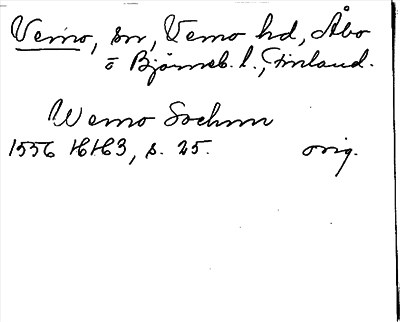 Vemo, sn, Vemo hd, Åbo
o Björneb. l., Finland.
Wemo Sochnn
1556 HH3, s. 25. orig.